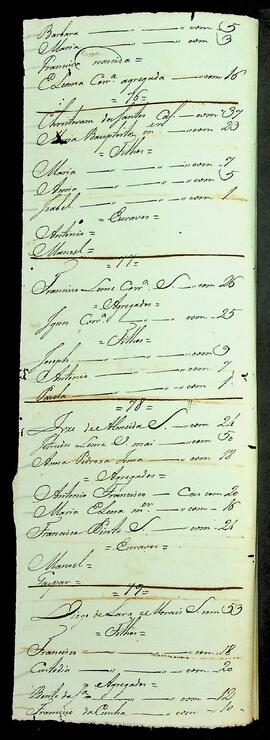 Barbara — " — " — com 5
Maria — " — " — com 3
Francisca nascida =
E Lena Corr.ª agregada — com 16
= 76 =
dos Santos Cas.º — com 37
Maria m.er — com 23
= Filhos =
Maria — " — " — com 7
Anna — " — " — com 5
Izabel — " — " — com 1
= Escravos =
Antonio =
Manoel =
= 77 =
Francisco Leme Corr.ª S. — com 26
= Agregados =
Ignes Corr.ª — " — com 25
= Filhos =
Joseph — " — " — com 9
Antonio — " — " — com 7
— " — " — com 1
= 78 =
de Almeida S. — com 24
Lema S. mai — com 50
Anna Pedroza Irma — com 18
= Agregados =
Antonio Francisco — Cas com 20
Maria E Lena m.er — com 16
Francisco Pinto S. — com 24
= Escravos =
Manoel =
Gaspar =
= 79 =
de Lara e Morais S. com 53
= Filhos =
Francisco — " — " — com 18
Custodia — " — " — com 20
= Agregados =
Bento da S.ª — " — com 12
Francisco da Cunha — " — com 10